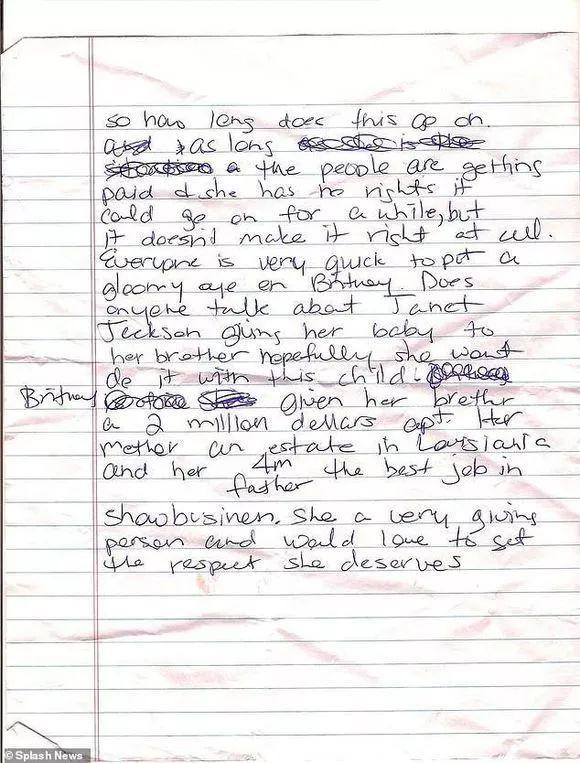 so how long does this go on.
as long
a the people are getting
paid & she has no rights it
could go on for a while, but
it doesn't make it right at all.
Everyone is very quick to put a
gloomy eye on Britney. Does
anyone talk about Janet
Jackson giving her baby to
her brother hopefully she wont
do it with this child.
Britney given her brother
a 2 million dollars apt. Her
mother an estate in Louisiana
4m
and her father the best job in
showbusiness. She a very giving
person and would love to get
the respect she deserves
© Splash News